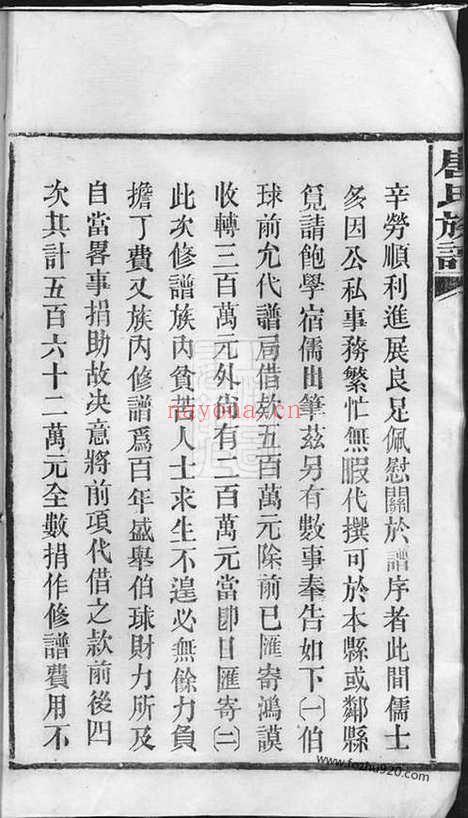 唐氏族譜
辛勞順利進展良足佩慰關於譜序者此間儒士
多因公私事務繁忙無暇代撰可於本縣或鄰縣
覓請飽學宿儒出筆茲另有數事奉告如下㈠伯
球前允代譜局借款五百萬元除前已匯寄鴻謨
收轉三百萬元外尚有二百萬元當卽日匯寄㈡
此次修譜族內貧苦人士求生不遑必無餘力負
擔丁費又族內修譜爲百年盛舉伯球財力所及
自當畧事捐助故決意將前項代借之款前後四
次其計五百六十二萬元全數捐作修譜費用不
nayona.cn
www.fozhu920.com